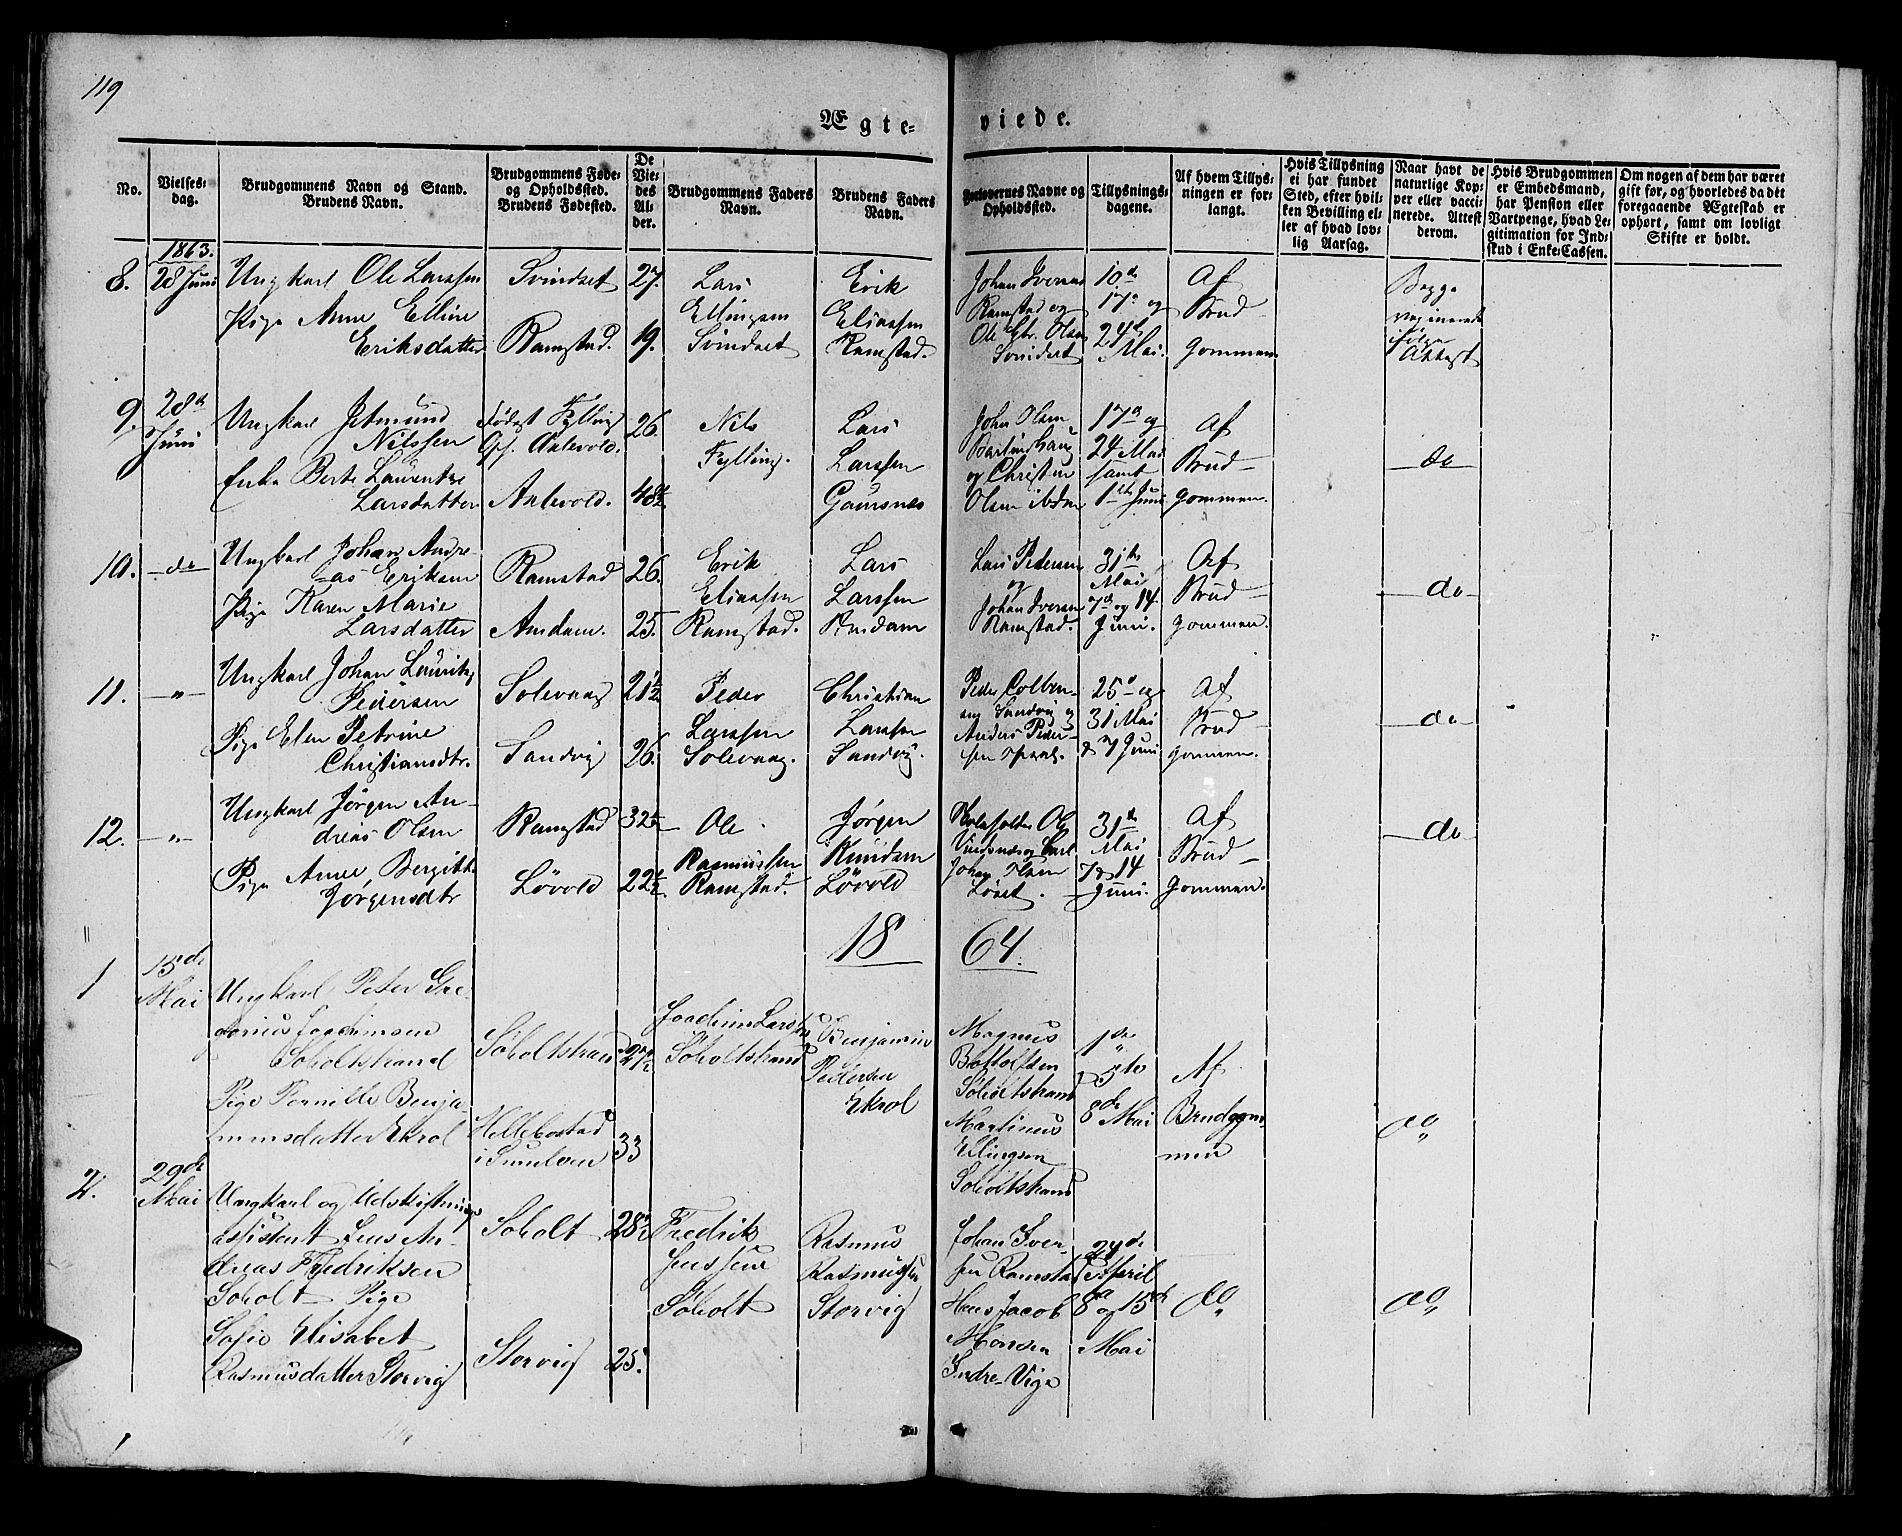 119
Ægte-
viede.
No.
Vielses-
dag.
Brudgommens Navn og Stand.
Brudens Navn.
Brudgommens Føde-
og Opholdssted.
Brudens Fødested.
De
Vie-
des
Al-
der.
Brudgommens Faders
Navn.
Brudens Faders
Navn.
Forlovernes Navne og
Opholdssted.
Tillysnings-
dagene.
Af hvem Tillys-
ningen er for-
langt.
Hvis Tillysning
ei har fundet
Sted, efter hvil-
ken Bevilling el-
ler af hvad lov-
lig Aarsag.
Naar havt de
naturlige Kop-
per eller vacci-
nerede. Attest
derom.
Hvis Brudgommen
er Embedsmand,
har Pension eller
Vartpenge, hvad Le-
gitimation for Ind-
skud i Enke-Cassen.
Om nogen af dem har været
gift før, og hvorledes da det
foregaaende Ægteskab er
ophørt, samt om lovligt
Skifte er holdt.
1863.
8.
28 Juni
Ungkarl Ole Larssen
Pige Anne Elline
Eriksdatter
Svindset
Ramstad.
27.
19.
Lars
Ellingsen
Svindset
Erik
Eliassen
Ramstad.
Johan Iversen
Ramstad og
Ole Olsen
Svindset
10de
17de og
24de
Mai.
Af
Brud-
gommen
Begge
vaxinerede
ifølge
Attest
9.
28de
Juni
Ungkarl Jetmund
Nilssen
Enke Berte Laurentze
Larsdatter
Født Fylling
Oph. Aalevold.
Aalevold.
26.
48½
Nils
Fylling.
Lars
Larssen
Gaursnes
John Olsen
og Christen
Olsen ibden
17de og
24 Mai
samt
1ste Juni
Af
Brud-
gommen.
do
10.
do
Ungkarl Johan Andre-
as Eriksen
Pige Karen Marie
Larsdatter
Ramstad
Amdam.
26.
25.
Erik
Eliassen
Ramstad.
Lars
Larssen
Amdam
Lars Pedersen
og
Johan Iversen
Ramstad.
31te
Mai
7de og 14
Juni.
Af
Brud-
gommen.
do
11.
"
Ungkarl Johan Lauritz
Pedersen
Pige Elen Petrine
Christiansdtr.
Solevaag
Sandvig
21½
26.
Peder
Larssen
Solevaag.
Christian
Larssen
Sandvig.
Peder Colben-
sen Sandvig og
Anders Peder-
sen
25de og
31 Mai
& 7 Juni
Af
Brud-
gommen.
do
12.
"
Ungkarl Jørgen An-
dreas Olsen
Pige Anne Bergitte
Jørgensdtr
Ramstad
Løvold
32½
22½
Ole
Rasmussen
Ramstad.
Jørgen
Knudsen
Løvold
Skoleholder Ole
og Carl
Johan Olsen
31te
Mai
7 & 14
Juni.
Af
Brud-
gommen.
do
18
64.
1
15de
Mai
Ungkarl Peter Gre-
gorius Joachimsen
Søholtstrand
Pige Pernille Benja-
minsdatter Ekrol
Søholtstrand
Hellebostad
i Sunelven
27½
33
Joachim Larsen
Søholtstrand
Benjamin
Pedersen
Ekrol
Magnus
Bottolfsen
Søholtstrand
Martinus
Elingsen
Søholtstrand
1de
"
5te
8de Mai
Af
Brudgom-
men
do
2.
29de
Mai
Ungkarl og Udskiftnings
assistent Jens An-
dreas Fredriksen
Søholt Pige
Sofie Elisabet
Rasmusdatter Storvig
Søholt
Storvig
28½
25.
Fredrik
Jenssen
Søholt
Rasmus
Rasmussen
Storvig
Johan Iver-
sen Ramstad
Hans Jacob
Monsen
Indre-Vige
24de
April
8de og 15de
Mai
do
do